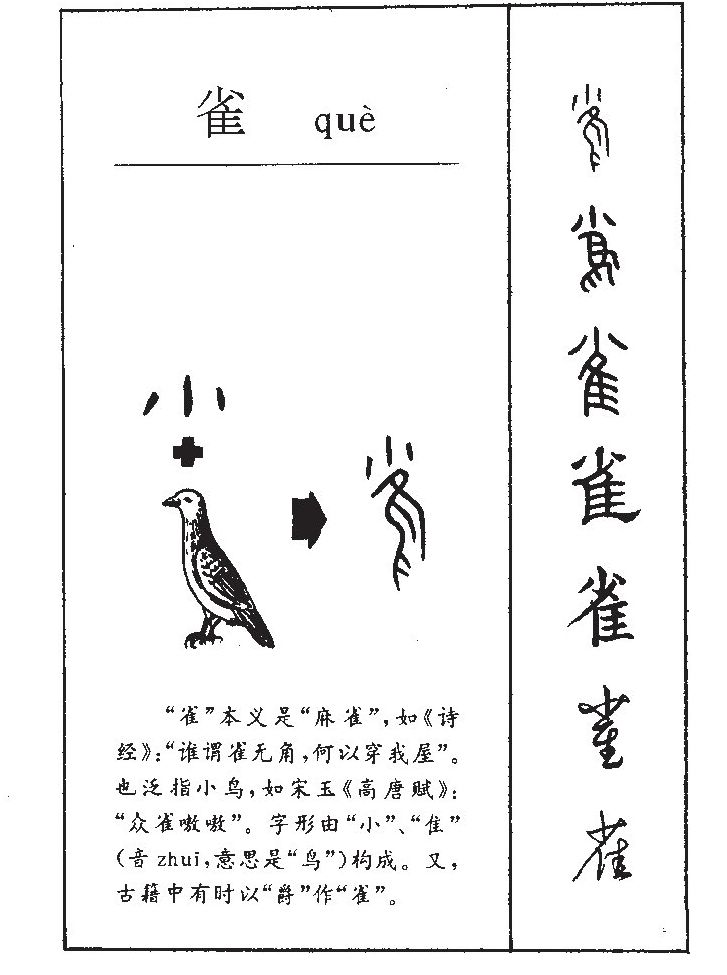 雀 què
“雀”本义是“麻雀”,如《诗
经》:“谁谓雀无角,何以穿我屋”。
也泛指小鸟,如宋玉《高唐赋》:
“众雀嗷嗷”。字形由“小”、“隹”
(音 zhui,意思是“鸟”)构成。又,
古籍中有时以“爵”作“雀”。
雀
雀
雀
雀
雀